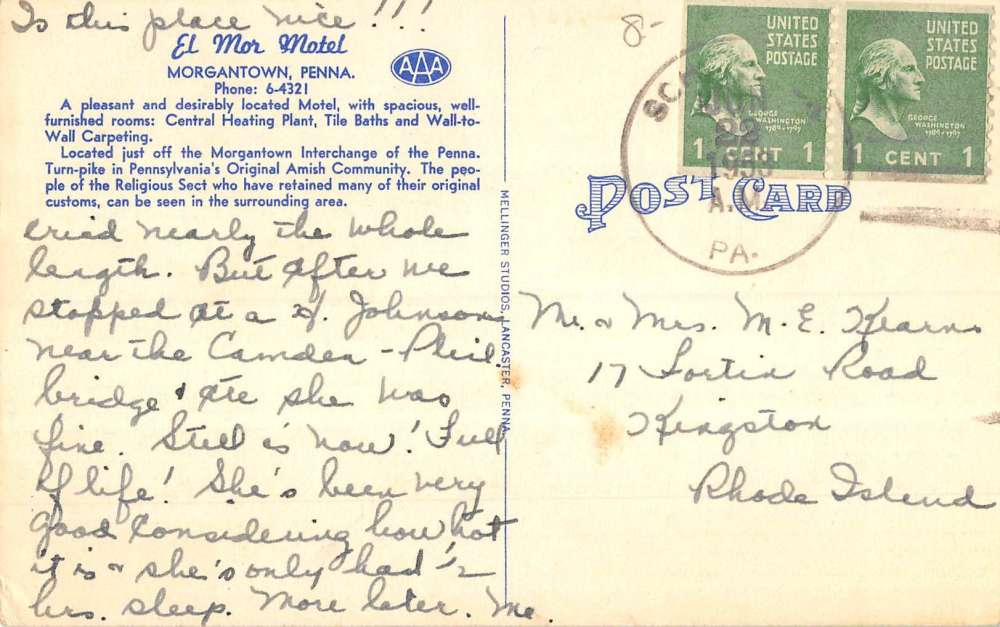 Is this place nice!!!
El Mor Motel
MORGANTOWN, PENNA.
Phone: 6-4321
AAA
A pleasant and desirably located Motel, with spacious, well-
furnished rooms: Central Heating Plant, Tile Baths and Wall-to-
Wall Carpeting.
Located just off the Morgantown Interchange of the Penna.
Turn-pike in Pennsylvania's Original Amish Community. The peo-
ple of the Religious Sect who have retained many of their original
customs, can be seen in the surrounding area.
cried nearly the whole
length. But after we
stopped at a H. Johnson
near the Camden - Phil.
bridge & ate she was
fine. Still is now! Full
of life! She's been very
good considering how hot
it is & she's only had 1/2
hrs. sleep. More later. Me.
MELLINGER STUDIOS, LANCASTER, PENNA.
8-
UNITED
STATES
POSTAGE
GEORGE
WASHINGTON
1789-1797
1 CENT 1
UNITED
STATES
POSTAGE
GEORGE
WASHINGTON
1789-1797
1 CENT 1
JUN
22
A.M.
PA.
POST CARD
Mr. & Mrs. M. E. Kearns
17 Fortin Road
Kingston
Rhode Island